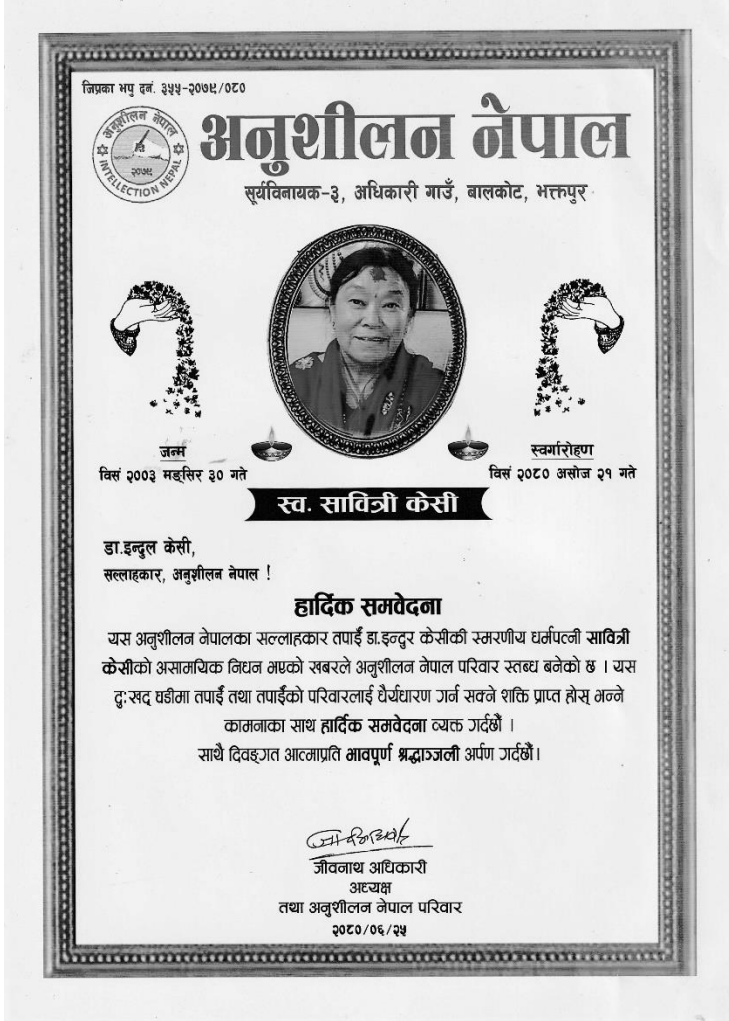 जिप्रका भपु दनं. ३५५-२०७९/०८०
अनुशीलन नेपाल
INTELLECTION NEPAL
२०७९
अनुशीलन नेपाल
सूर्यविनायक-३, अधिकारी गाउँ, बालकोट, भक्तपुर
जन्म
विसं २००३ मङ्सिर ३० गते
स्वर्गारोहण
विसं २०८० असोज २१ गते
स्व. सावित्री केसी
डा.इन्दुल केसी,
सल्लाहकार, अनुशीलन नेपाल !
हार्दिक समवेदना
यस अनुशीलन नेपालका सल्लाहकार तपाईँ डा.इन्दुर केसीकी स्मरणीय धर्मपत्नी सावित्री
केसीको असामयिक निधन भएको खबरले अनुशीलन नेपाल परिवार स्तब्ध बनेको छ । यस
दुःखद घडीमा तपाईँ तथा तपाईँको परिवारलाई धैर्यधारण गर्न सक्ने शक्ति प्राप्त होस् भन्ने
कामनाका साथ हार्दिक समवेदना व्यक्त गर्दछौँ ।
साथै दिवङ्गत आत्माप्रति भावपूर्ण श्रद्धाञ्जली अर्पण गर्दछौँ।
जीवनाथ अधिकारी
अध्यक्ष
तथा अनुशीलन नेपाल परिवार
२०८०/०६/२५